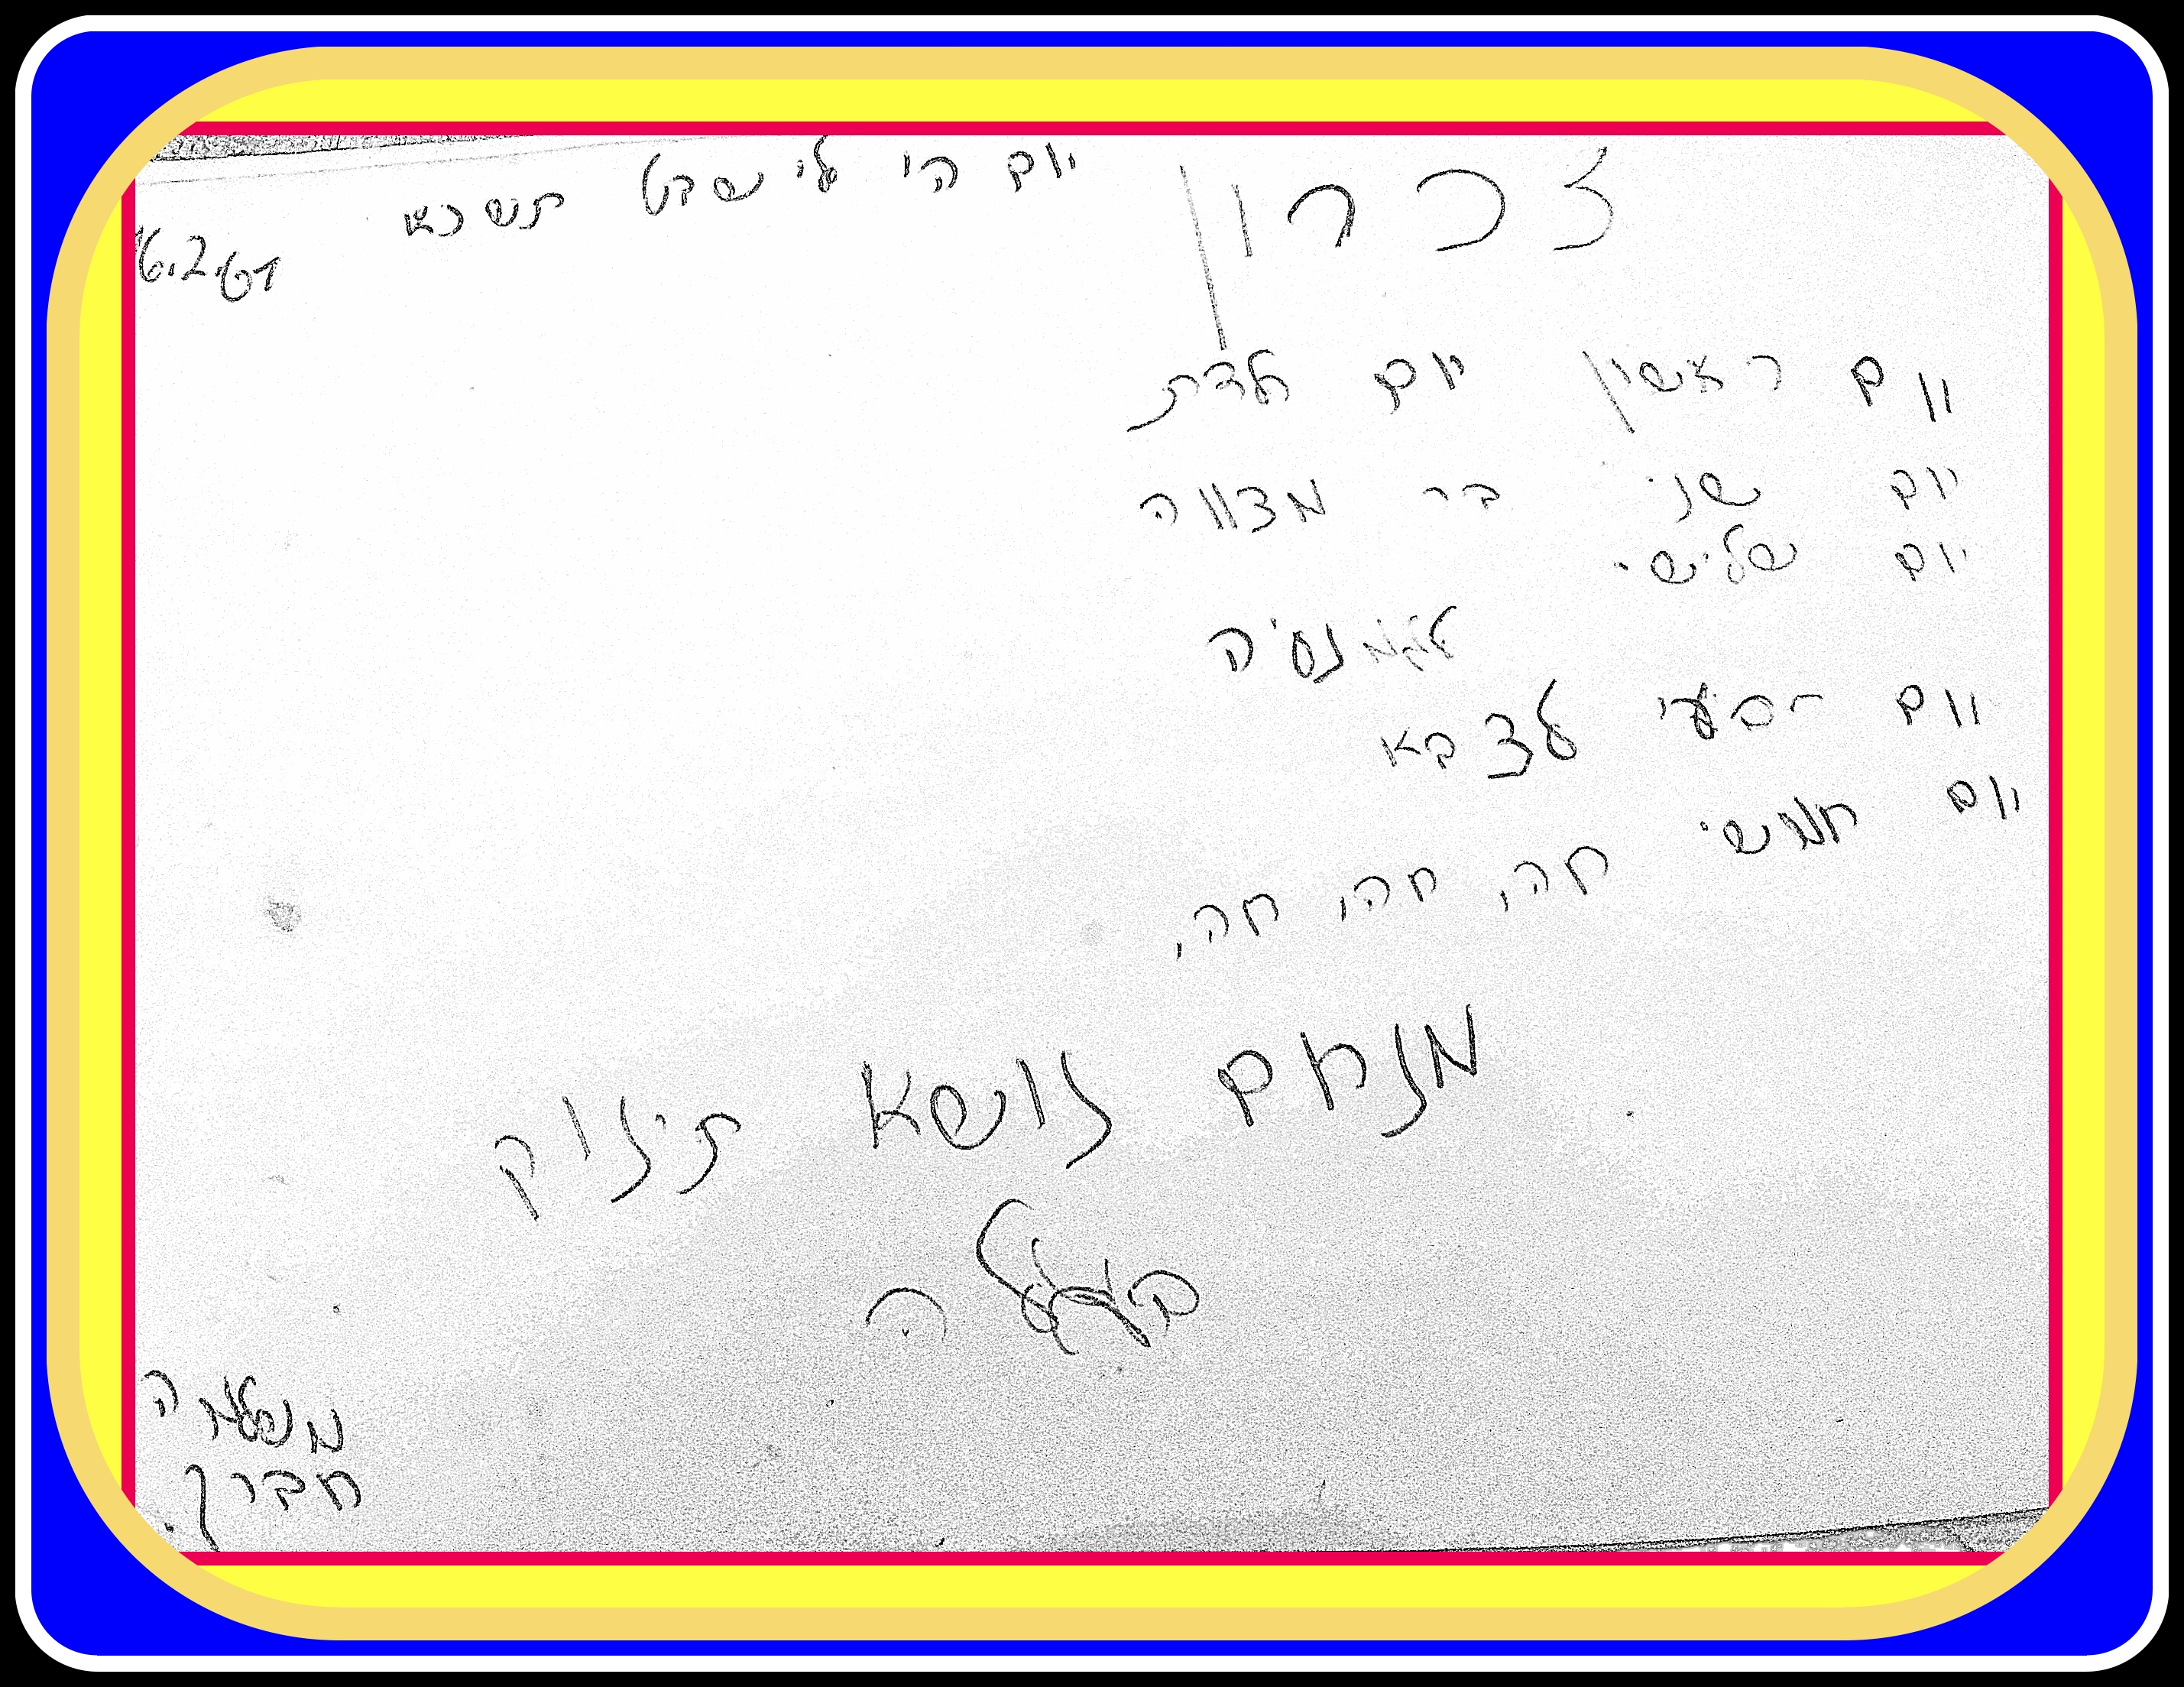 זכרון
יום ה' ל' שבט תשכא
16.2.61
יום ראשון יום לדת
יום שני בר מצווה
יום שלישי
לגמנסיה
יום רבעי לצבא
יום חמשי חה, חה, חה,
מנחם נושא תינוק
ה
חברך.